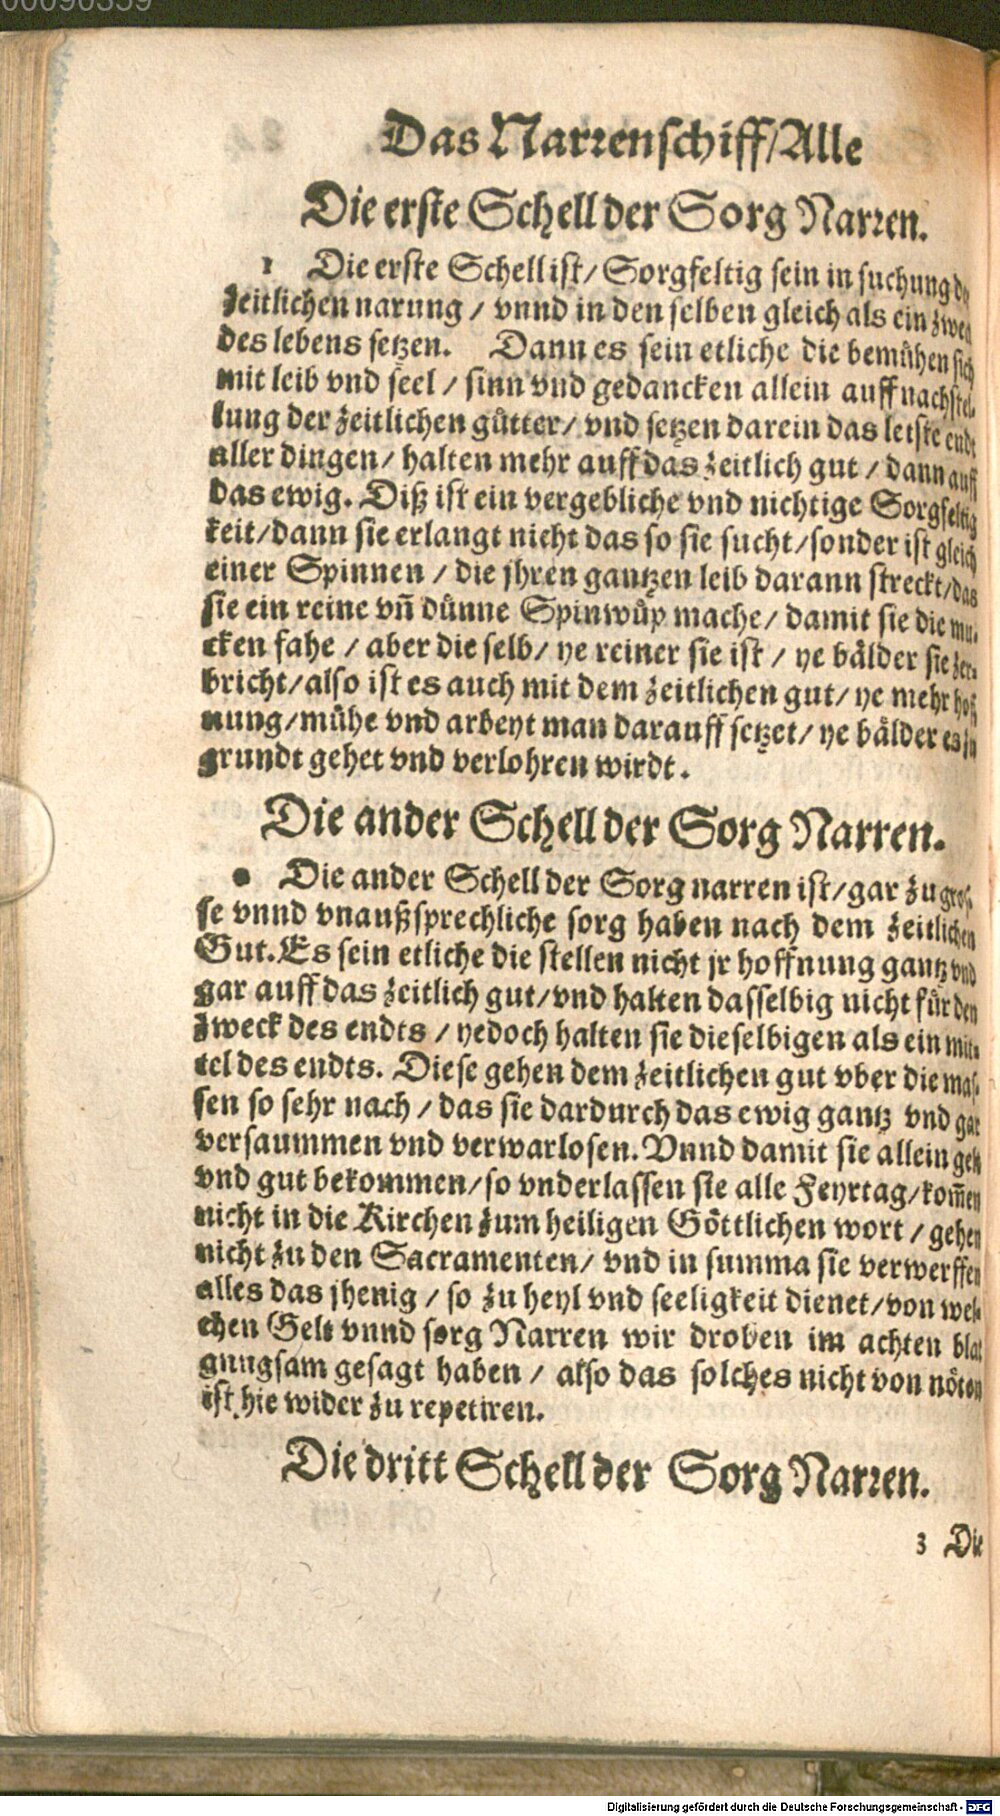 00090359
Das Narrenschiff/Alle
Die erste Schell der Sorg Narren.
1 Die erste Schell ist/ Sorgfeltig sein in suchung der
zeitlichen narung / vnnd in den selben gleich als ein zweck
des lebens setzen. Dann es sein etliche die bemühen sich
mit leib vnd seel / sinn vnd gedancken allein auff nachstel-
lung der zeitlichen gütter/ vnd setzen darein das letste endt
aller dingen/ halten mehr auff das zeitlich gut / dann auff
das ewig. Diß ist ein vergebliche vnd nichtige Sorgfeltig
keit/dann sie erlangt nicht das so sie sucht/sonder ist gleich
einer Spinnen / die jhren gantzen leib darann streckt/das
sie ein reine vn̄ dünne Spinwůp mache/ damit sie die mu-
cken fahe / aber die selb/ ye reiner sie ist / ye bälder sie zer-
bricht/also ist es auch mit dem zeitlichen gut/ ye mehr hoff
nung/mühe vnd arbeyt man darauff setzet/ ye bälder es zu
grundt gehet vnd verlohren wirdt.
Die ander Schell der Sorg Narren.
Die ander Schell der Sorg narren ist/gar zu gros-
se vnnd vnaußsprechliche sorg haben nach dem zeitlichen
Gut. Es sein etliche die stellen nicht jr hoffnung gantz vnd
gar auff das zeitlich gut/vnd halten dasselbig nicht für den
zweck des endts / yedoch halten sie dieselbigen als ein mit-
tel des endts. Diese gehen dem zeitlichen gut vber die mas-
sen so sehr nach / das sie dardurch das ewig gantz vnd gar
versaummen vnd verwarlosen. Vnnd damit sie allein gelt
vnd gut bekommen/so vnderlassen sie alle Feyrtag/kom̄en
nicht in die Kirchen zum heiligen Göttlichen wort / gehen
nicht zu den Sacramenten/ vnd in summa sie verwerffen
alles das jhenig / so zu heyl vnd seeligkeit dienet/von wel-
chen Gelt vnnd sorg Narren wir droben im achten blat
gnugsam gesagt haben / also das solches nicht von nöten
ist hie wider zu repetiren.
Die dritt Schell der Sorg Narren.
3 Die
Digitalisierung gefördert durch die Deutsche Forschungsgemeinschaft - DFG